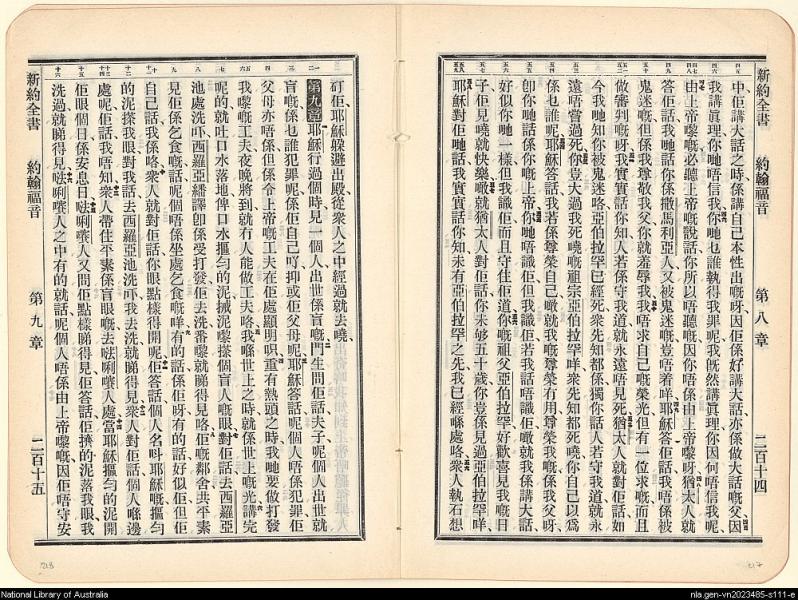 新約全書 約翰福音 第八章 二百十四
中佢講大話之時係講自己本性出嘅呀因佢係好講大話亦係做大話嘅父因
我講眞理你哋唔信我你哋乜誰執得我罪呢我旣然講眞理你因何唔信我呢
由上帝嚟嘅必聽上帝嘅說話你所以唔聽嘅因你唔係由上帝嚟呀猶太人就
答佢話我哋話你係撒馬利亞人又被鬼迷嘅豈唔着咩耶穌答佢話我唔係被
鬼迷嘅但係我尊敬我父你就羞辱我我唔求自己嘅榮光但有一位求嘅而且
做審判嘅呀我實實話你知人若係守我道就永遠唔見死猶太人就對佢話如
今我哋知你被鬼迷咯亞伯拉罕已經死衆先知都係獨你話人若守我道就永
遠唔嘗過死你豈大過我死嘵嘅祖宗亞伯拉罕咩衆先知都死嘵你自己以爲
係乜誰呢耶穌答話我若係尊榮自己噉就我嘅尊榮冇用尊榮我嘅係我父呀
卽你哋話係你嘅上帝你哋唔識佢但我識佢若我話唔識佢噉就我係講大話
好似你哋一樣但我識佢而且守住佢道你嘅祖父亞伯拉罕好歡喜見我嘅日
子佢見嘵就快樂噉就猶太人對佢話你未够五十歲你豈係見過亞伯拉罕咩
耶穌對佢哋話我實實話你知未有亞伯拉罕之先我已經喺處咯衆人執石想
打佢耶穌躱避出殿從衆人之中經過就去嘵
第九章 耶穌行過個時見一個人出世係盲嘅門生問佢話夫子呢個人出世就
盲嘅係乜誰犯罪呢係佢自己吖抑或佢父母呢耶穌答話呢個人唔係犯罪佢
父母亦唔係但係令上帝嘅工夫在佢處顯明呮重有熱頭之時我哋要做打發
我嚟嘅工夫夜晚將到就冇人能做工夫咯我喺世上之時就係世上嘅光講完
呢的就吐口水落地俾口水搵勻的泥搽泥嚟搽個盲人嘅眼對佢話去西羅亞
池處洗吓西羅亞繙譯卽係受打發佢去洗番嚟就睇得見咯佢嘅鄰舍共平素
見佢係乞食嘅話呢個唔係坐處乞食嘅咩有的話係佢呀有的話好似佢但佢
自己話我係咯衆人就對佢話你眼點樣得開呢佢答話個人名呌耶穌嘅搵勻
的泥搽我眼對我話去西羅亞池洗吓我去洗就睇得見衆人對佢話個人喺邊
處呢佢話我唔知衆人帶住平素係盲眼嘅去法唎㘔人處當耶穌搵勻的泥開
佢眼個日係安息日法唎㘔人又問佢點樣睇得見佢答話佢擠的泥落我眼我
洗過就睇得見法唎㘔人之中有的就話呢個人唔係由上帝嚟嘅因佢唔守安
新約全書 約翰福音 第九章 二百十五
218
217
National Library of Australia
nla.gen-vn2023485-s111-e